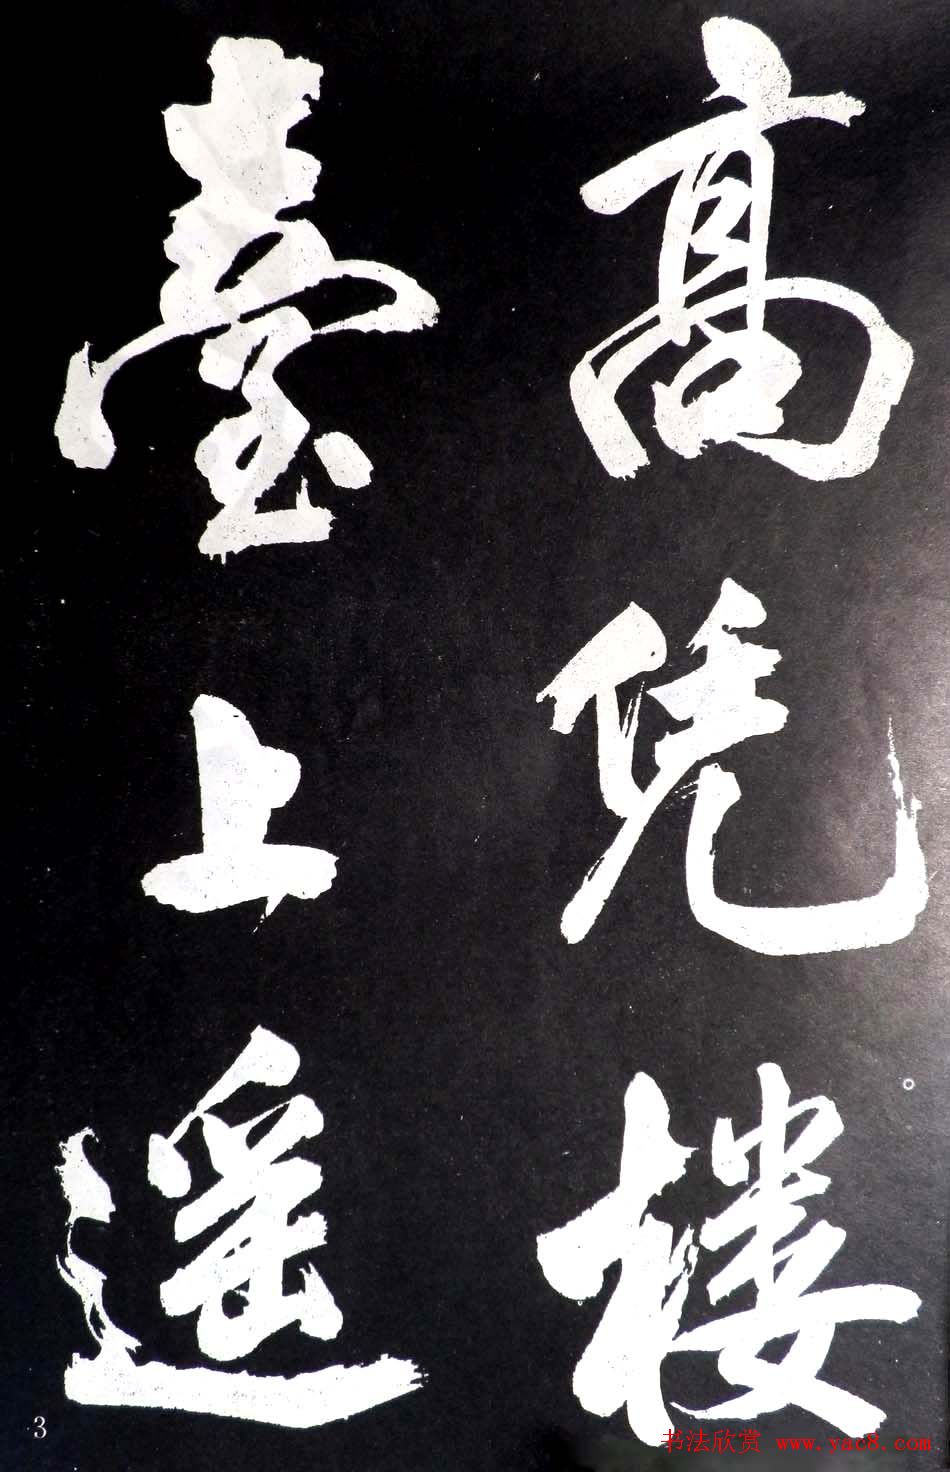 高凭楼
臺上遥
3
书法欣赏 www.yac8.com